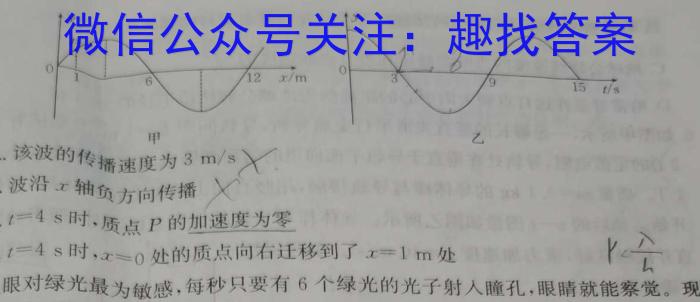 微信公众号关注：趣找答案
0 1 6 12 x/m 0 3 9 15 t/s
甲 乙
.该波的传播速度为 3 m/s
.波沿 x 轴负方向传播
.t=4 s 时,质点 P 的加速度为零
.t=4 s 时,x=0 处的质点向右迁移到了 x=1 m 处
眼对绿光最为敏感,每秒只要有 6 个绿光的光子射入瞳孔,眼睛就能察觉。现